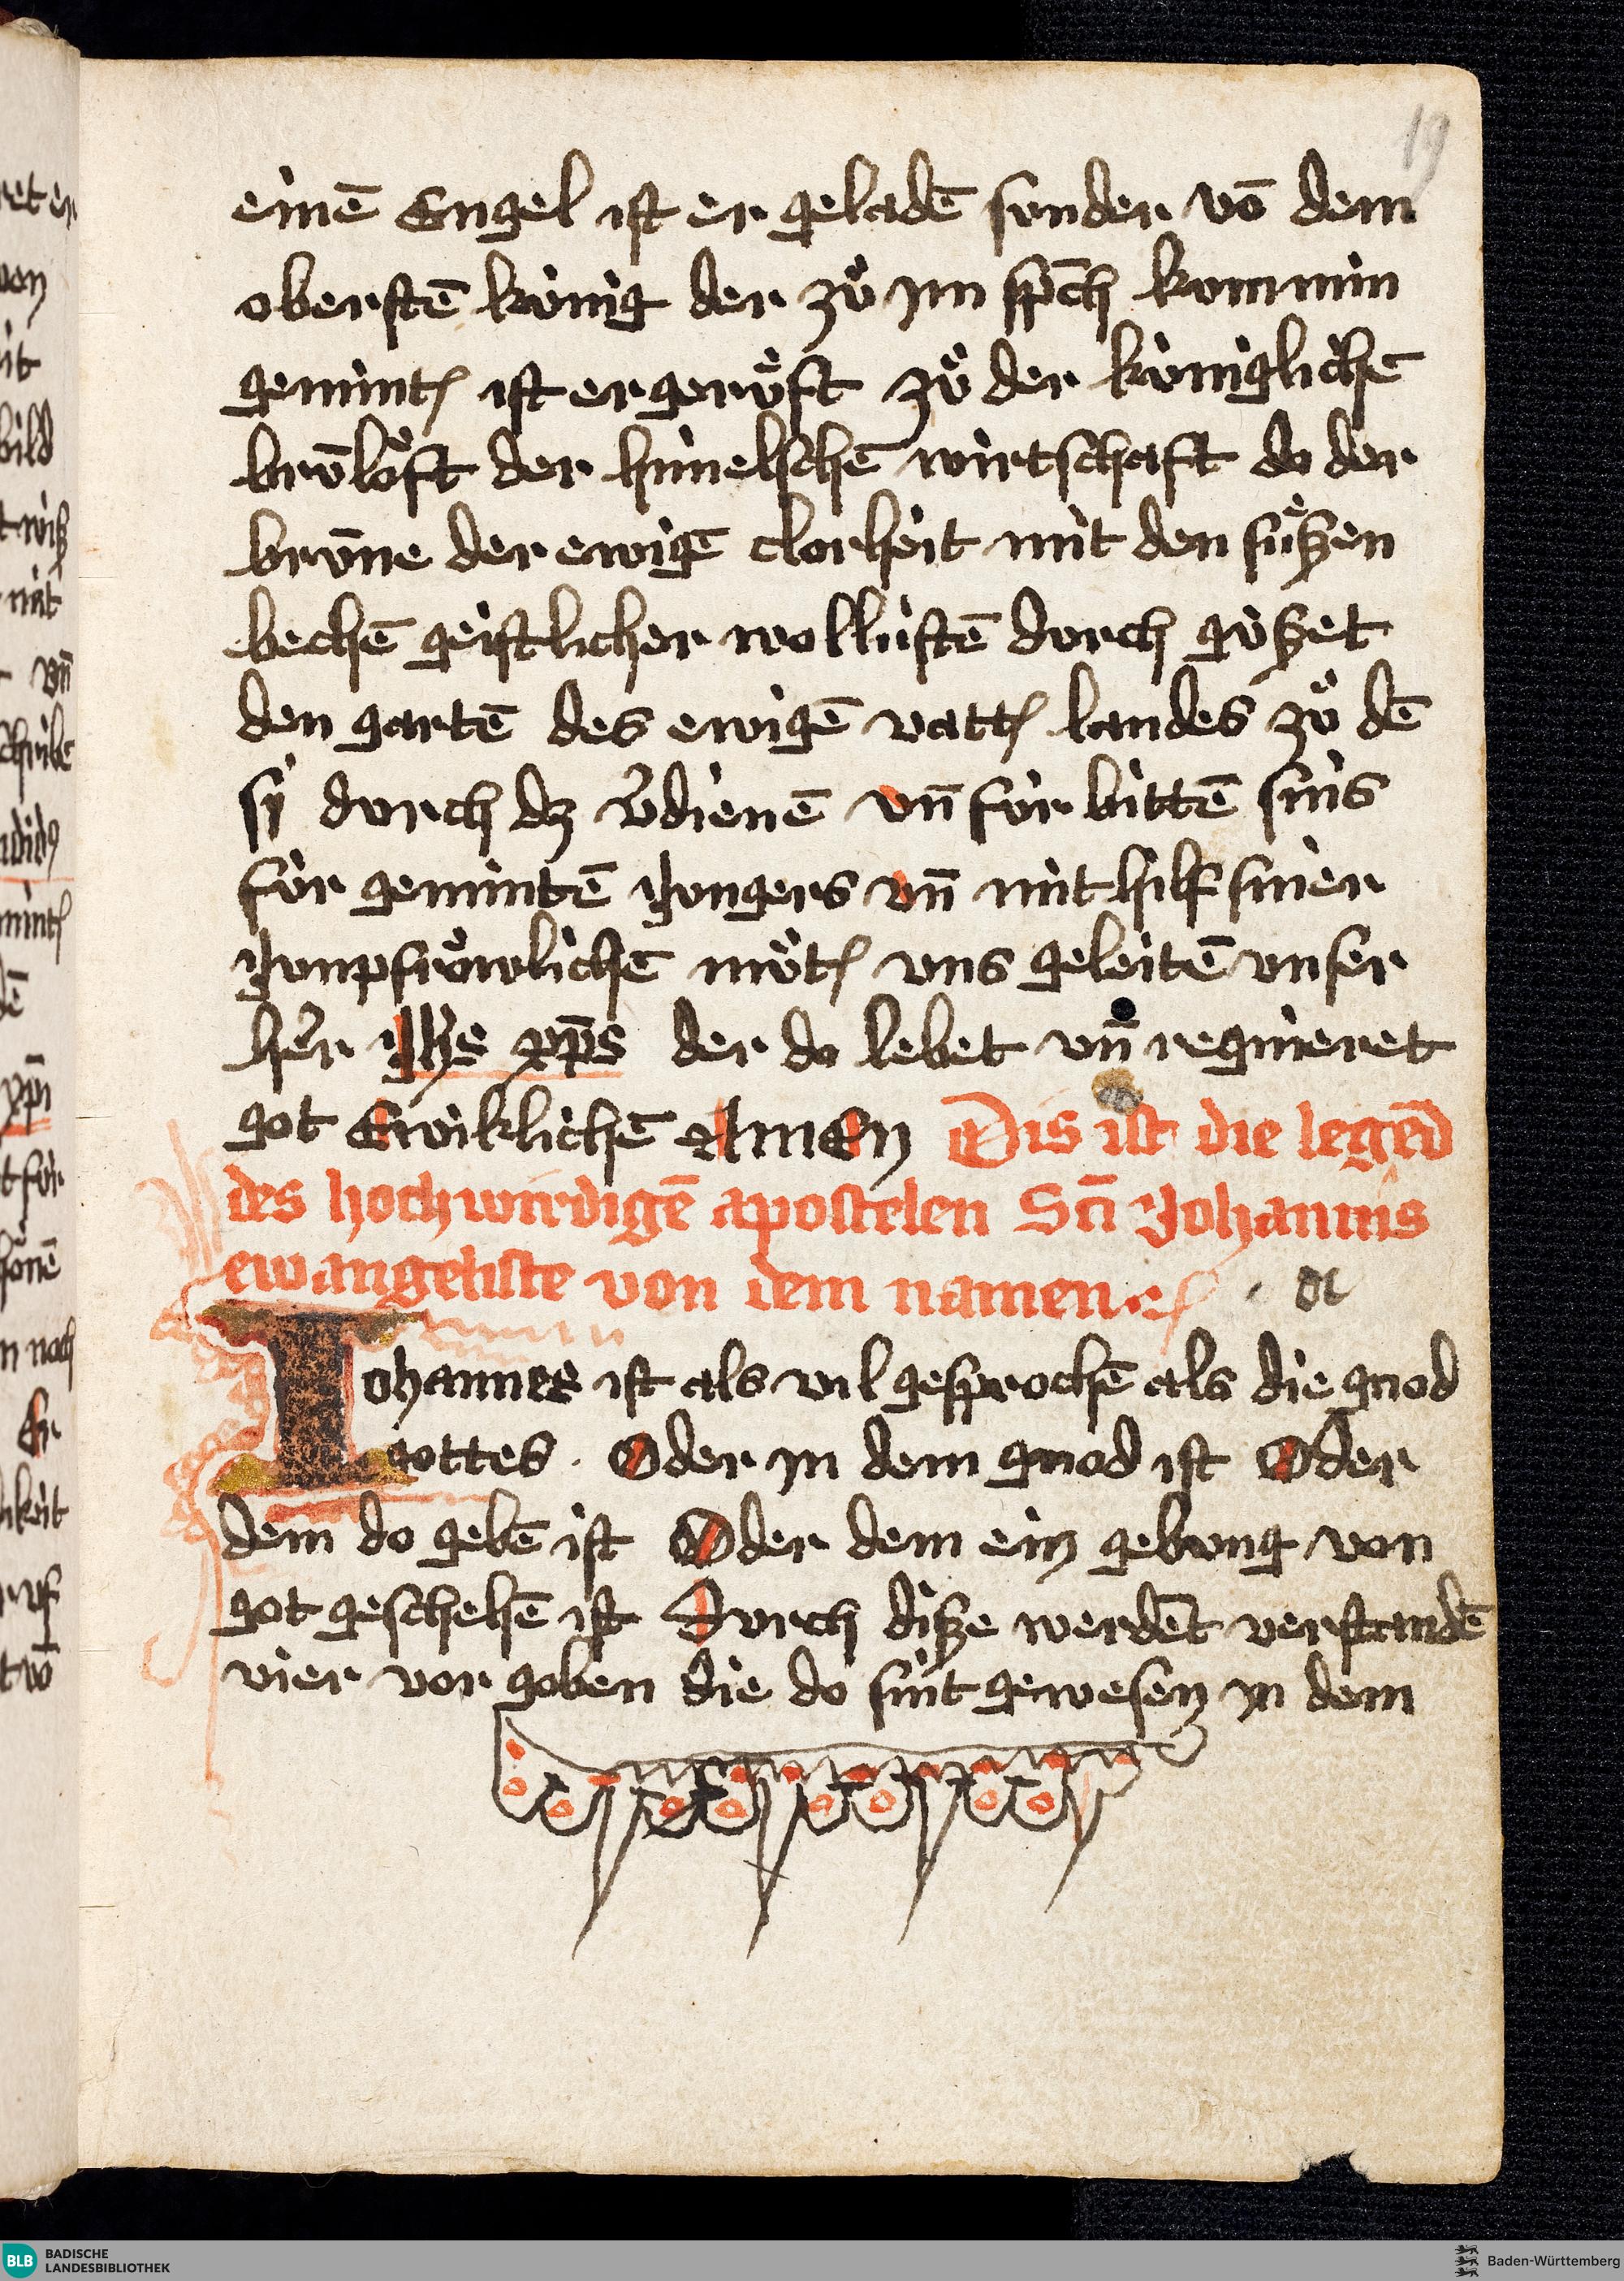 19
einē Engel ist er geladē sonder vō dem
oberstē kúnig der zů jm sp̄ch kum min
gemint͛ ist er gerůft zů der kúniglichē
brv̄lo̊ft der himelschē wirtschaft do der
brv̄ne der ewigē clorheit mit den sůszen
bechē geistlicher wollústē durch gúszet
den gartē des ewigē vatt͛ landes zů dē
sÿ durch dz v͛dienē vn̄ fúr bittē sins
fúr gemintē Jungers vn̄ mit hilf siner
Junpfrǒwlichē můt͛ vns geleitē vnser
her Jhs xp̄s der do lebet vn̄ regnieret
got Ewiklichē AmEn Dis ist die legēd
des hochwirdigē apostelen Sci̅ Johannis
ewangeliste von dem namen
Iohannes ist als vil gesprochē als die gnod
gottes. Oder jn dem gnod ist Oder
dem do gebē ist Oder dem ein gebung von
got geschehē ist Durch disze werdēt verstandē
vier vor goben die do sint gewesen jn dem
BLB BADISCHE
LANDESBIBLIOTHEK
Baden-Württemberg